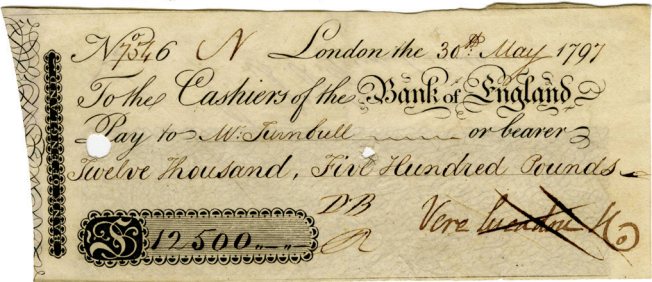 No 7546 N London the 30th May 1797
To the Cashiers of the Bank of England
Pay to Mr. Turnbull or bearer
Twelve Thousand, Five Hundred Pounds
DB
£12500 " - " -
Vere & Co
BANK OF ENGLAND